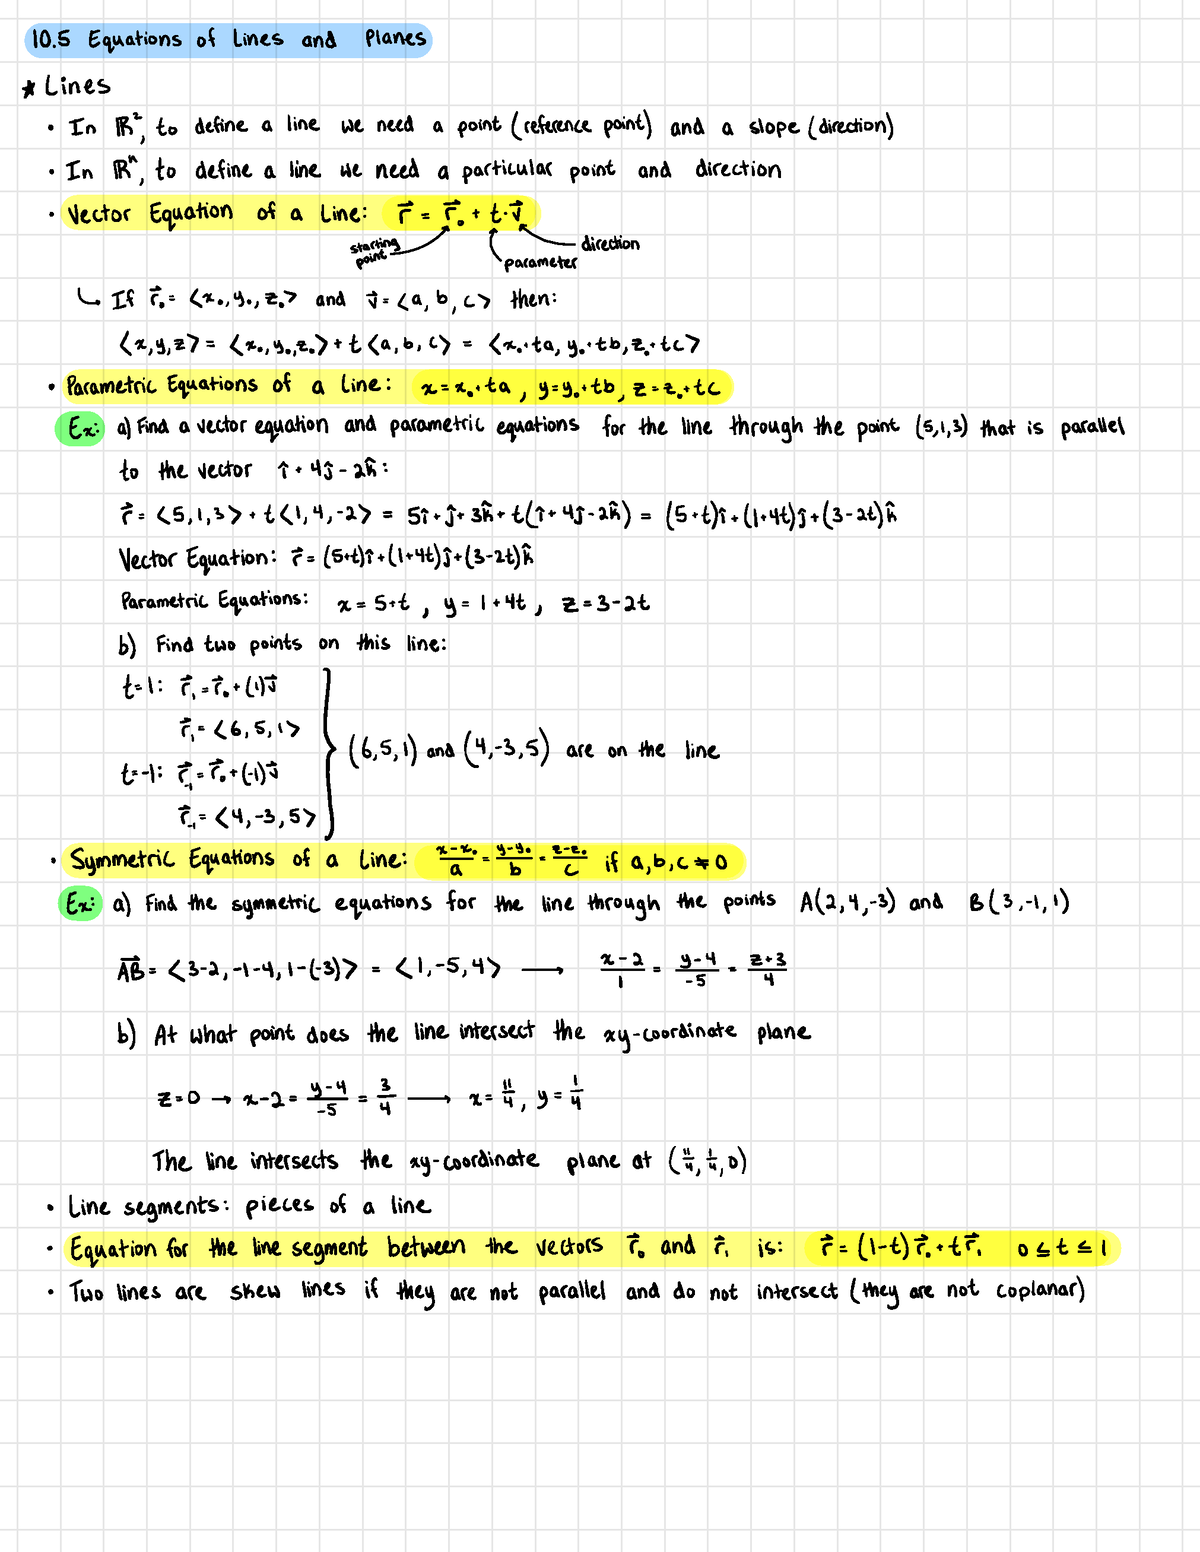 10.5 Equations of Lines and Planes
* Lines
• In ℝ², to define a line we need a point (reference point) and a slope (direction)
• In ℝⁿ, to define a line we need a particular point and direction
• Vector Equation of a Line: r⃗ = r⃗₀ + t·v⃗
starting point
parameter
direction
↳ If r⃗₀ = <x₀, y₀, z₀> and v⃗ = <a, b, c> then:
<x, y, z> = <x₀, y₀, z₀> + t <a, b, c> = <x₀+ta, y₀+tb, z₀+tc>
• Parametric Equations of a Line: x = x₀+ta, y = y₀+tb, z = z₀+tc
Ex: a) Find a vector equation and parametric equations for the line through the point (5,1,3) that is parallel
to the vector î + 4ĵ - 2k̂:
r⃗ = <5,1,3> + t<1,4,-2> = 5î + ĵ + 3k̂ + t(î + 4ĵ - 2k̂) = (5+t)î + (1+4t)ĵ + (3-2t)k̂
Vector Equation: r⃗ = (5+t)î + (1+4t)ĵ + (3-2t)k̂
Parametric Equations: x = 5+t, y = 1+4t, z = 3-2t
b) Find two points on this line:
t=1: r⃗₁ = r⃗₀ + (1)v⃗
r⃗₁ = <6, 5, 1>
(6,5,1) and (4,-3,5) are on the line
t=-1: r⃗₋₁ = r⃗₀ + (-1)v⃗
r⃗₋₁ = <4, -3, 5>
• Symmetric Equations of a Line: (x-x₀)/a = (y-y₀)/b = (z-z₀)/c if a, b, c ≠ 0
Ex: a) Find the symmetric equations for the line through the points A(2,4,-3) and B(3,-1,1)
AB⃗ = <3-2, -1-4, 1-(-3)> = <1, -5, 4> ⟶ (x-2)/1 = (y-4)/-5 = (z+3)/4
b) At what point does the line intersect the xy-coordinate plane
z=0 → x-2 = (y-4)/-5 = 3/4 ⟶ x = 11/4, y = 1/4
The line intersects the xy-coordinate plane at (11/4, 1/4, 0)
• Line segments: pieces of a line
• Equation for the line segment between the vectors r⃗₀ and r⃗₁ is: r⃗ = (1-t)r⃗₀ + tr⃗₁ 0 ≤ t ≤ 1
• Two lines are skew lines if they are not parallel and do not intersect (they are not coplanar)